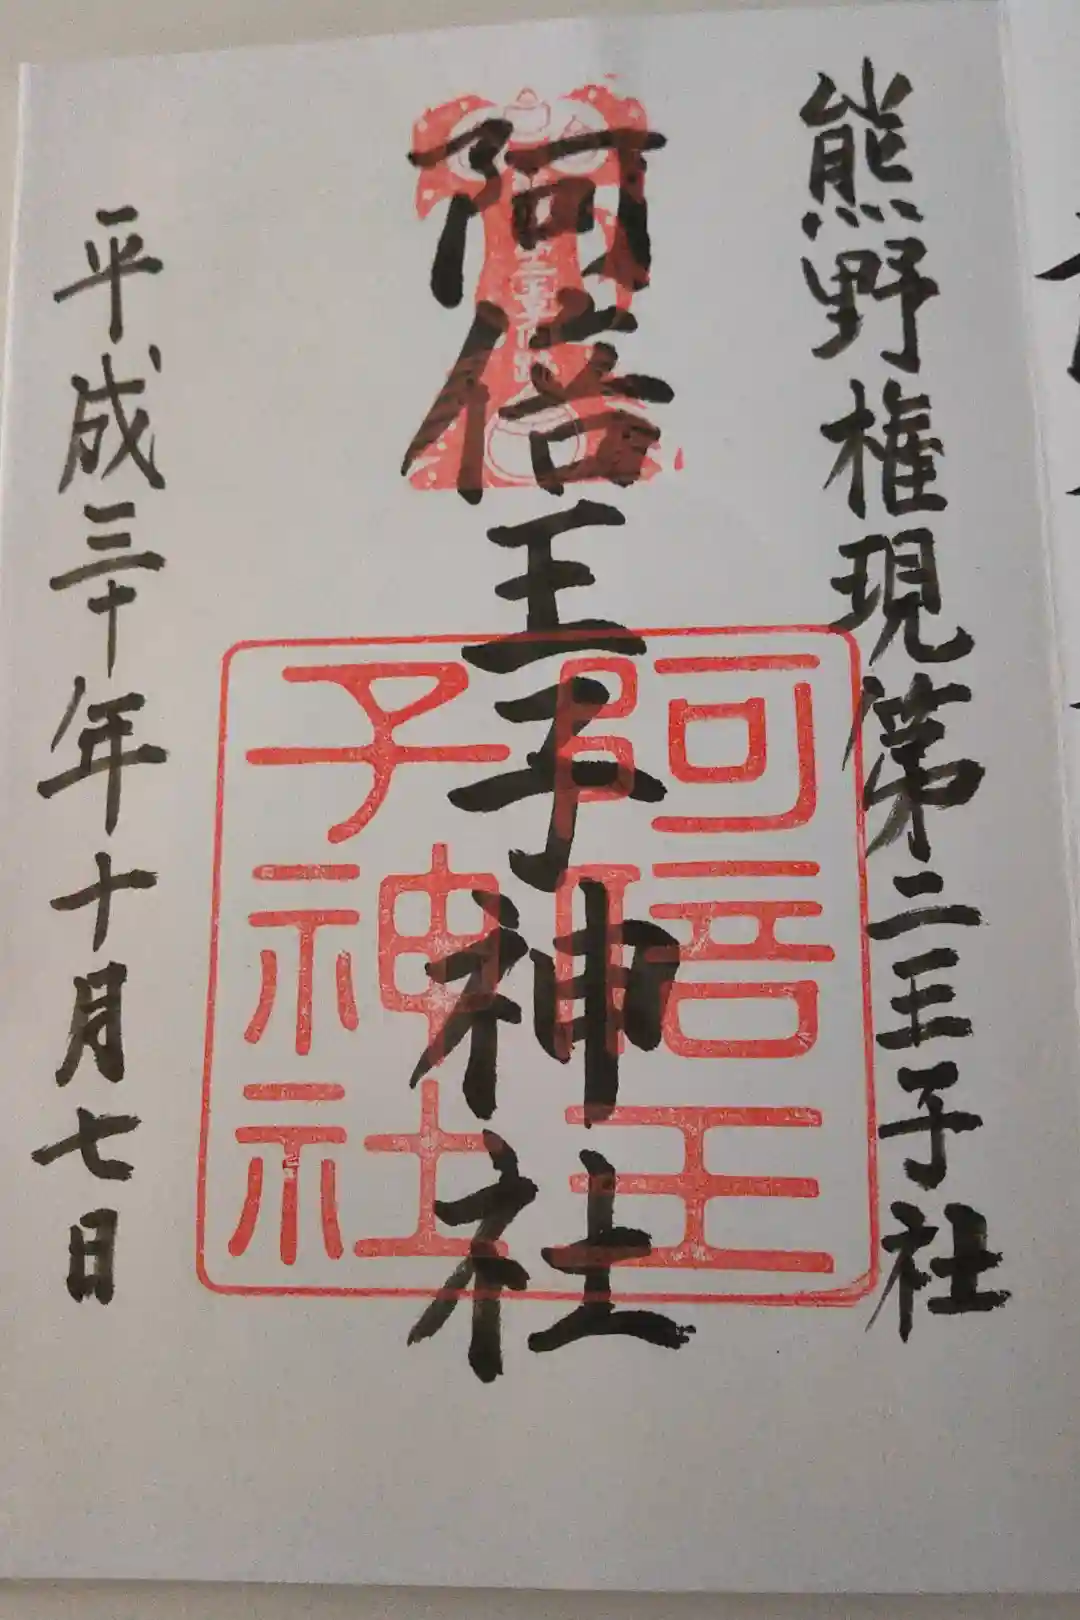 熊野権現第二王子社
阿倍王子神社
阿倍王
子神社
平成三十年十月七日